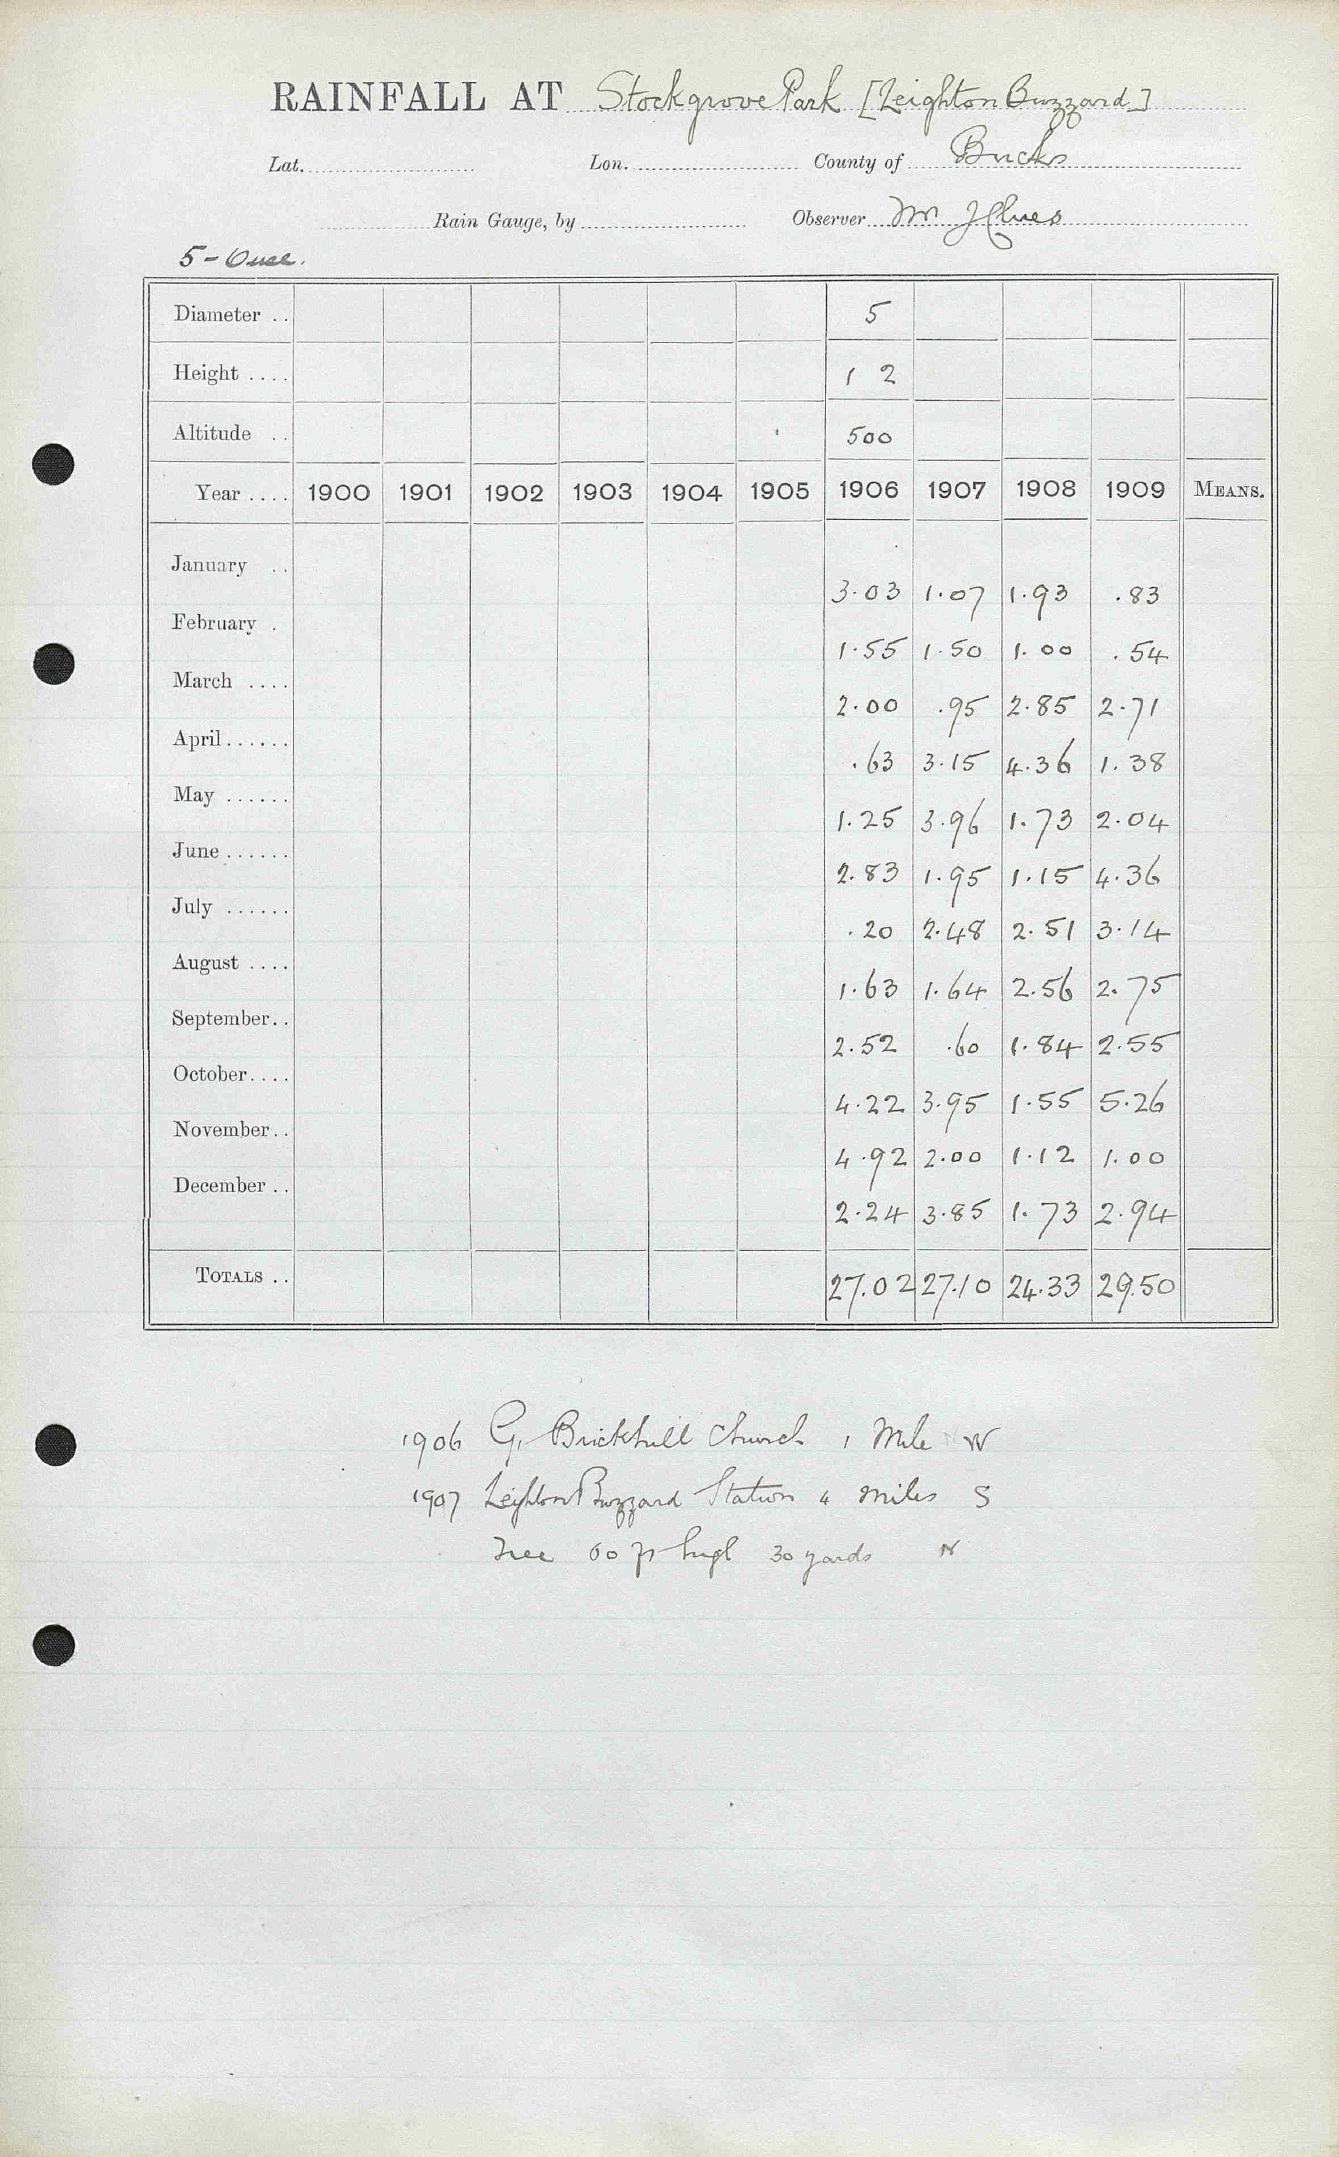 RAINFALL AT Stockgrove Park [Leighton Buzzard]
Lat. Lon. County of Bucks
Rain Gauge, by Observer Mr J Clues
5 - Ouse.
Diameter .. 5
Height .... 1 2
Altitude .. 500
Year .... 1900 1901 1902 1903 1904 1905 1906 1907 1908 1909 MEANS.
January .. 3.03 1.07 1.93 .83
February . 1.55 1.50 1.00 .54
March .... 2.00 .95 2.85 2.71
April...... .63 3.15 4.36 1.38
May ...... 1.25 3.96 1.73 2.04
June...... 2.83 1.95 1.15 4.36
July ...... .20 2.48 2.51 3.14
August .... 1.63 1.64 2.56 2.75
September.. 2.52 .60 1.84 2.55
October.... 4.22 3.95 1.55 5.26
November.. 4.92 2.00 1.12 1.00
December .. 2.24 3.85 1.73 2.94
TOTALS .. 27.02 27.10 24.33 29.50
1906 G. Brickhill Church 1 Mile W
1907 Leighton Buzzard Station 4 miles S
Tree 60 ft high 30 yards N